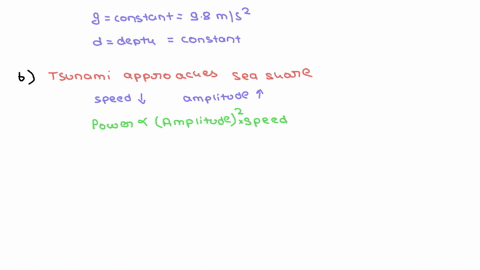 g = constant = 9.8 m/s²
d = deptu = constant
b) Tsunami approaches sea shore
speed ↓ amplitude ↑
Power ∝ (Amplitude)² × speed